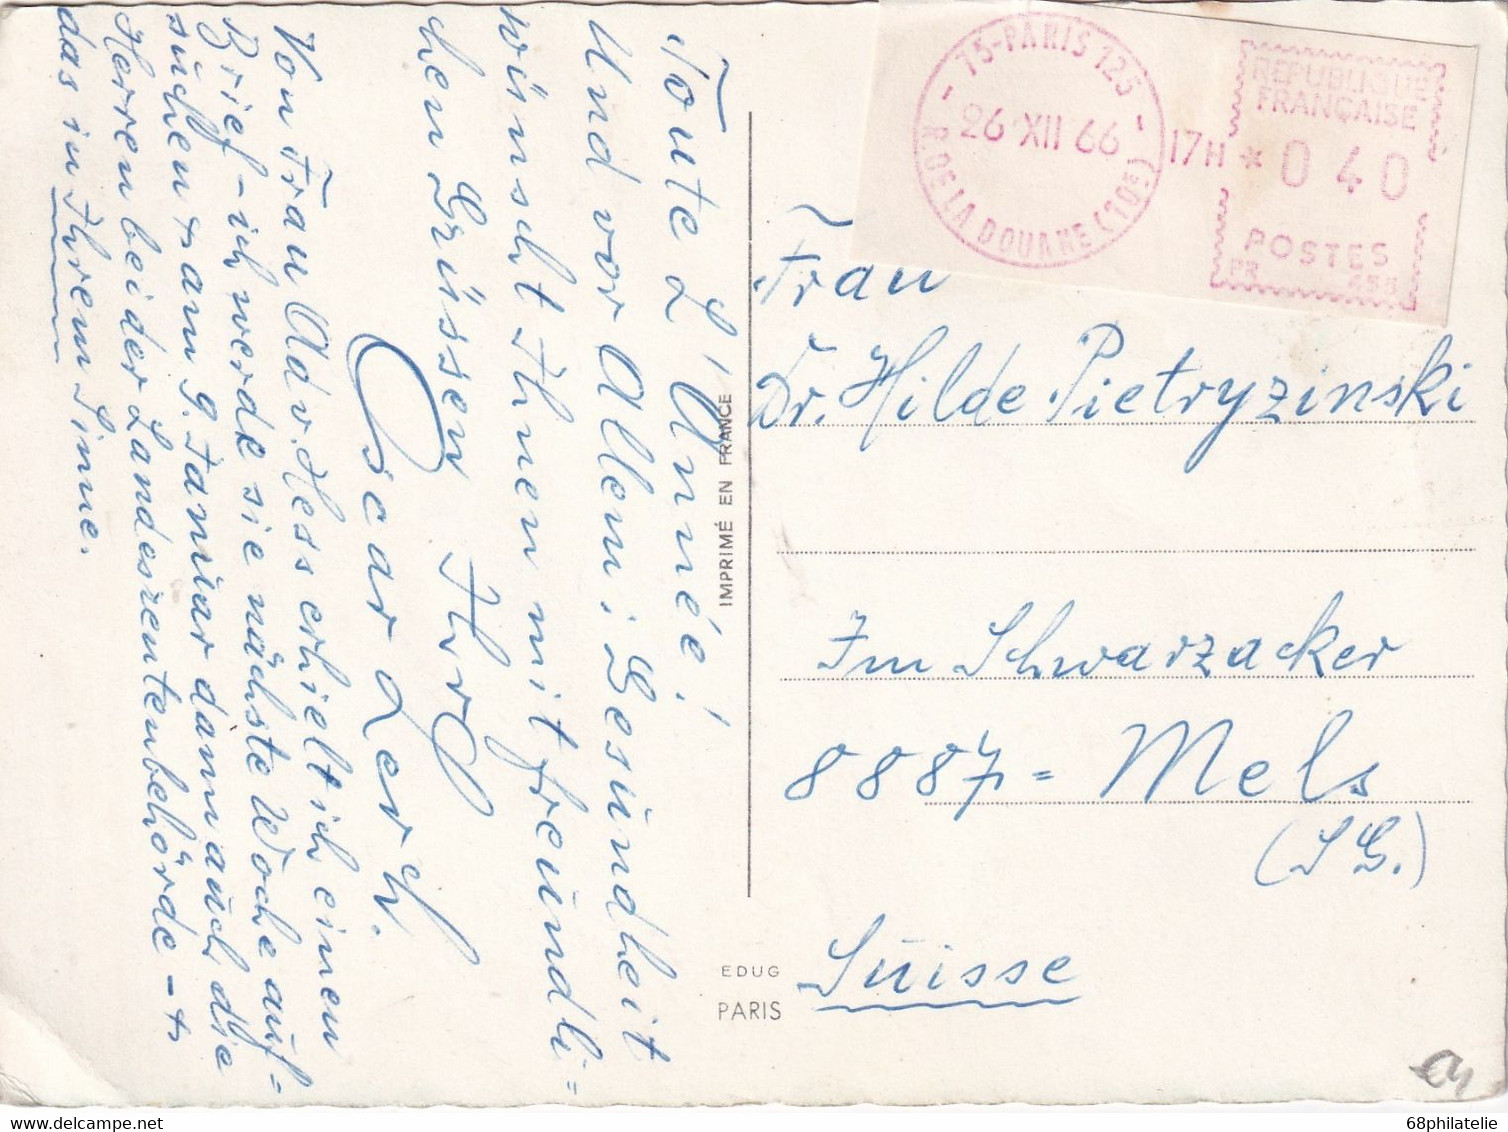 Toute L'Année!
Und vor Allem: Gesundheit
wünscht Ihnen mit freundli=
chen Grüssen Ihr
Oscar Lerch.
Von Frau Adv. Hess erhielt ich einen
Brief – ich werde sie nächste Woche auf-
suchen & am 9. Januar dann auch die
Herren bei der Landeszentenbehörde – &
das in Ihrem Sinne.
IMPRIMÉ EN FRANCE
EDUG
PARIS
75-PARIS 125
26 XII 66
R. DE LA DOUANE (10E)
17H
REPUBLIQUE
FRANÇAISE
*040
POSTES
PR
Frau
Dr. Hilde Pietryzinski
Im Schwarzacker
8887= Mels
(SG.)
Suisse
68philatelie